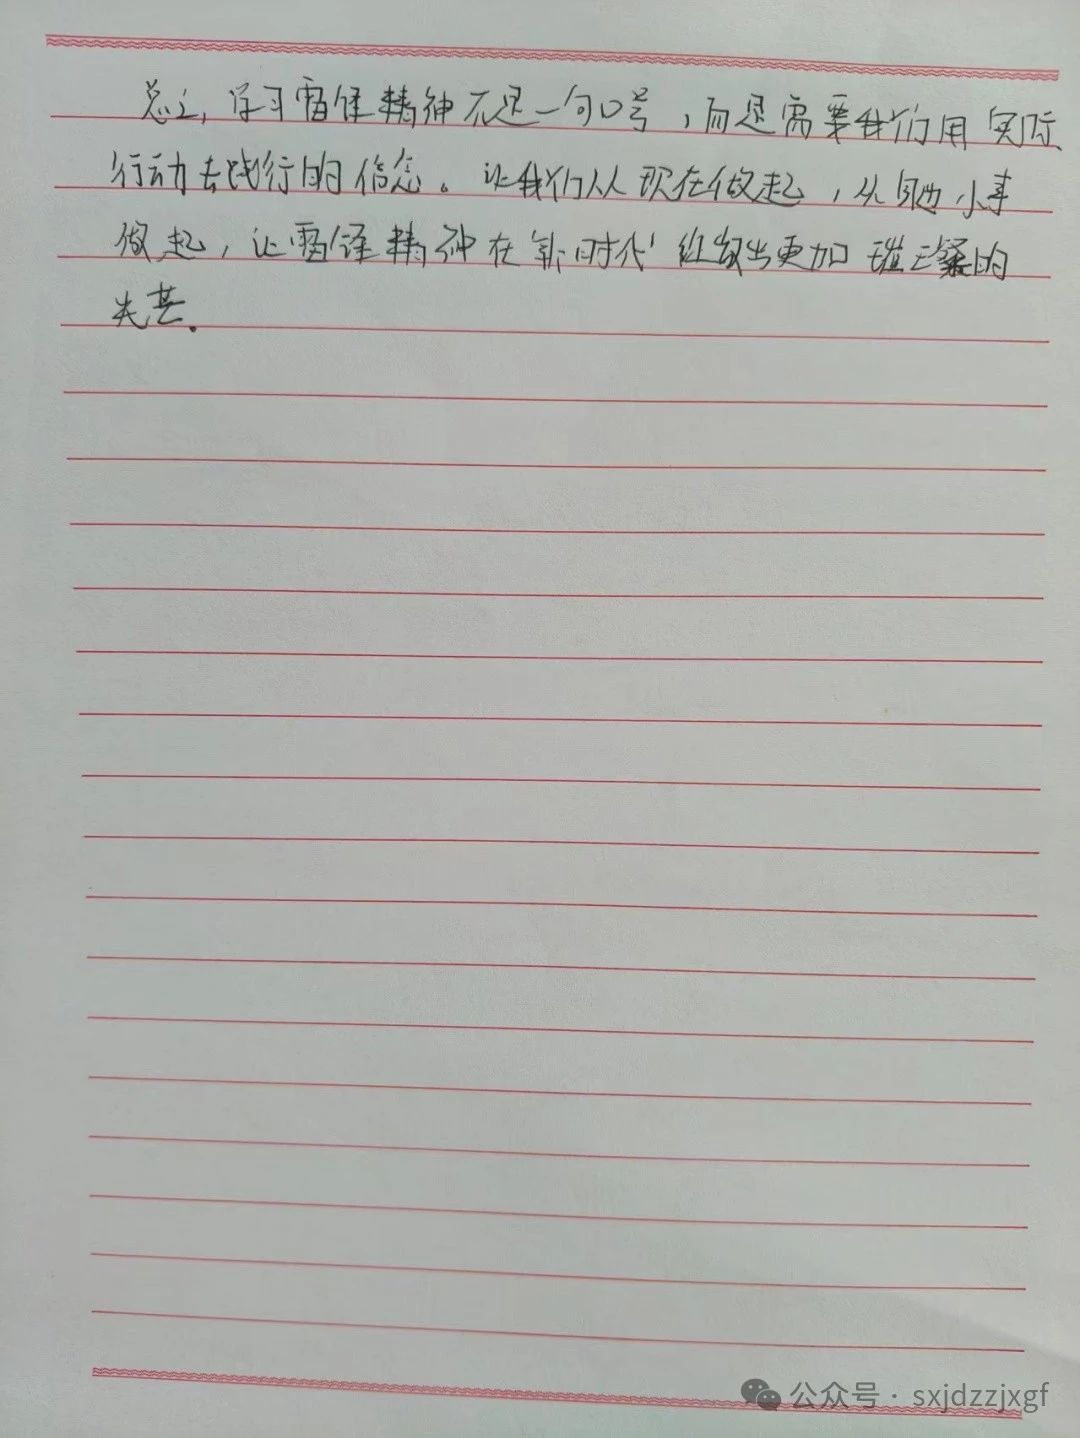 总之，学习雷锋精神不是一句口号，而是需要我们用实际
行动去践行的信念。让我们从现在做起，从身边小事
做起，让雷锋精神在新时代绽放出更加璀璨的
光芒。
公众号·sxjdzzjxgf